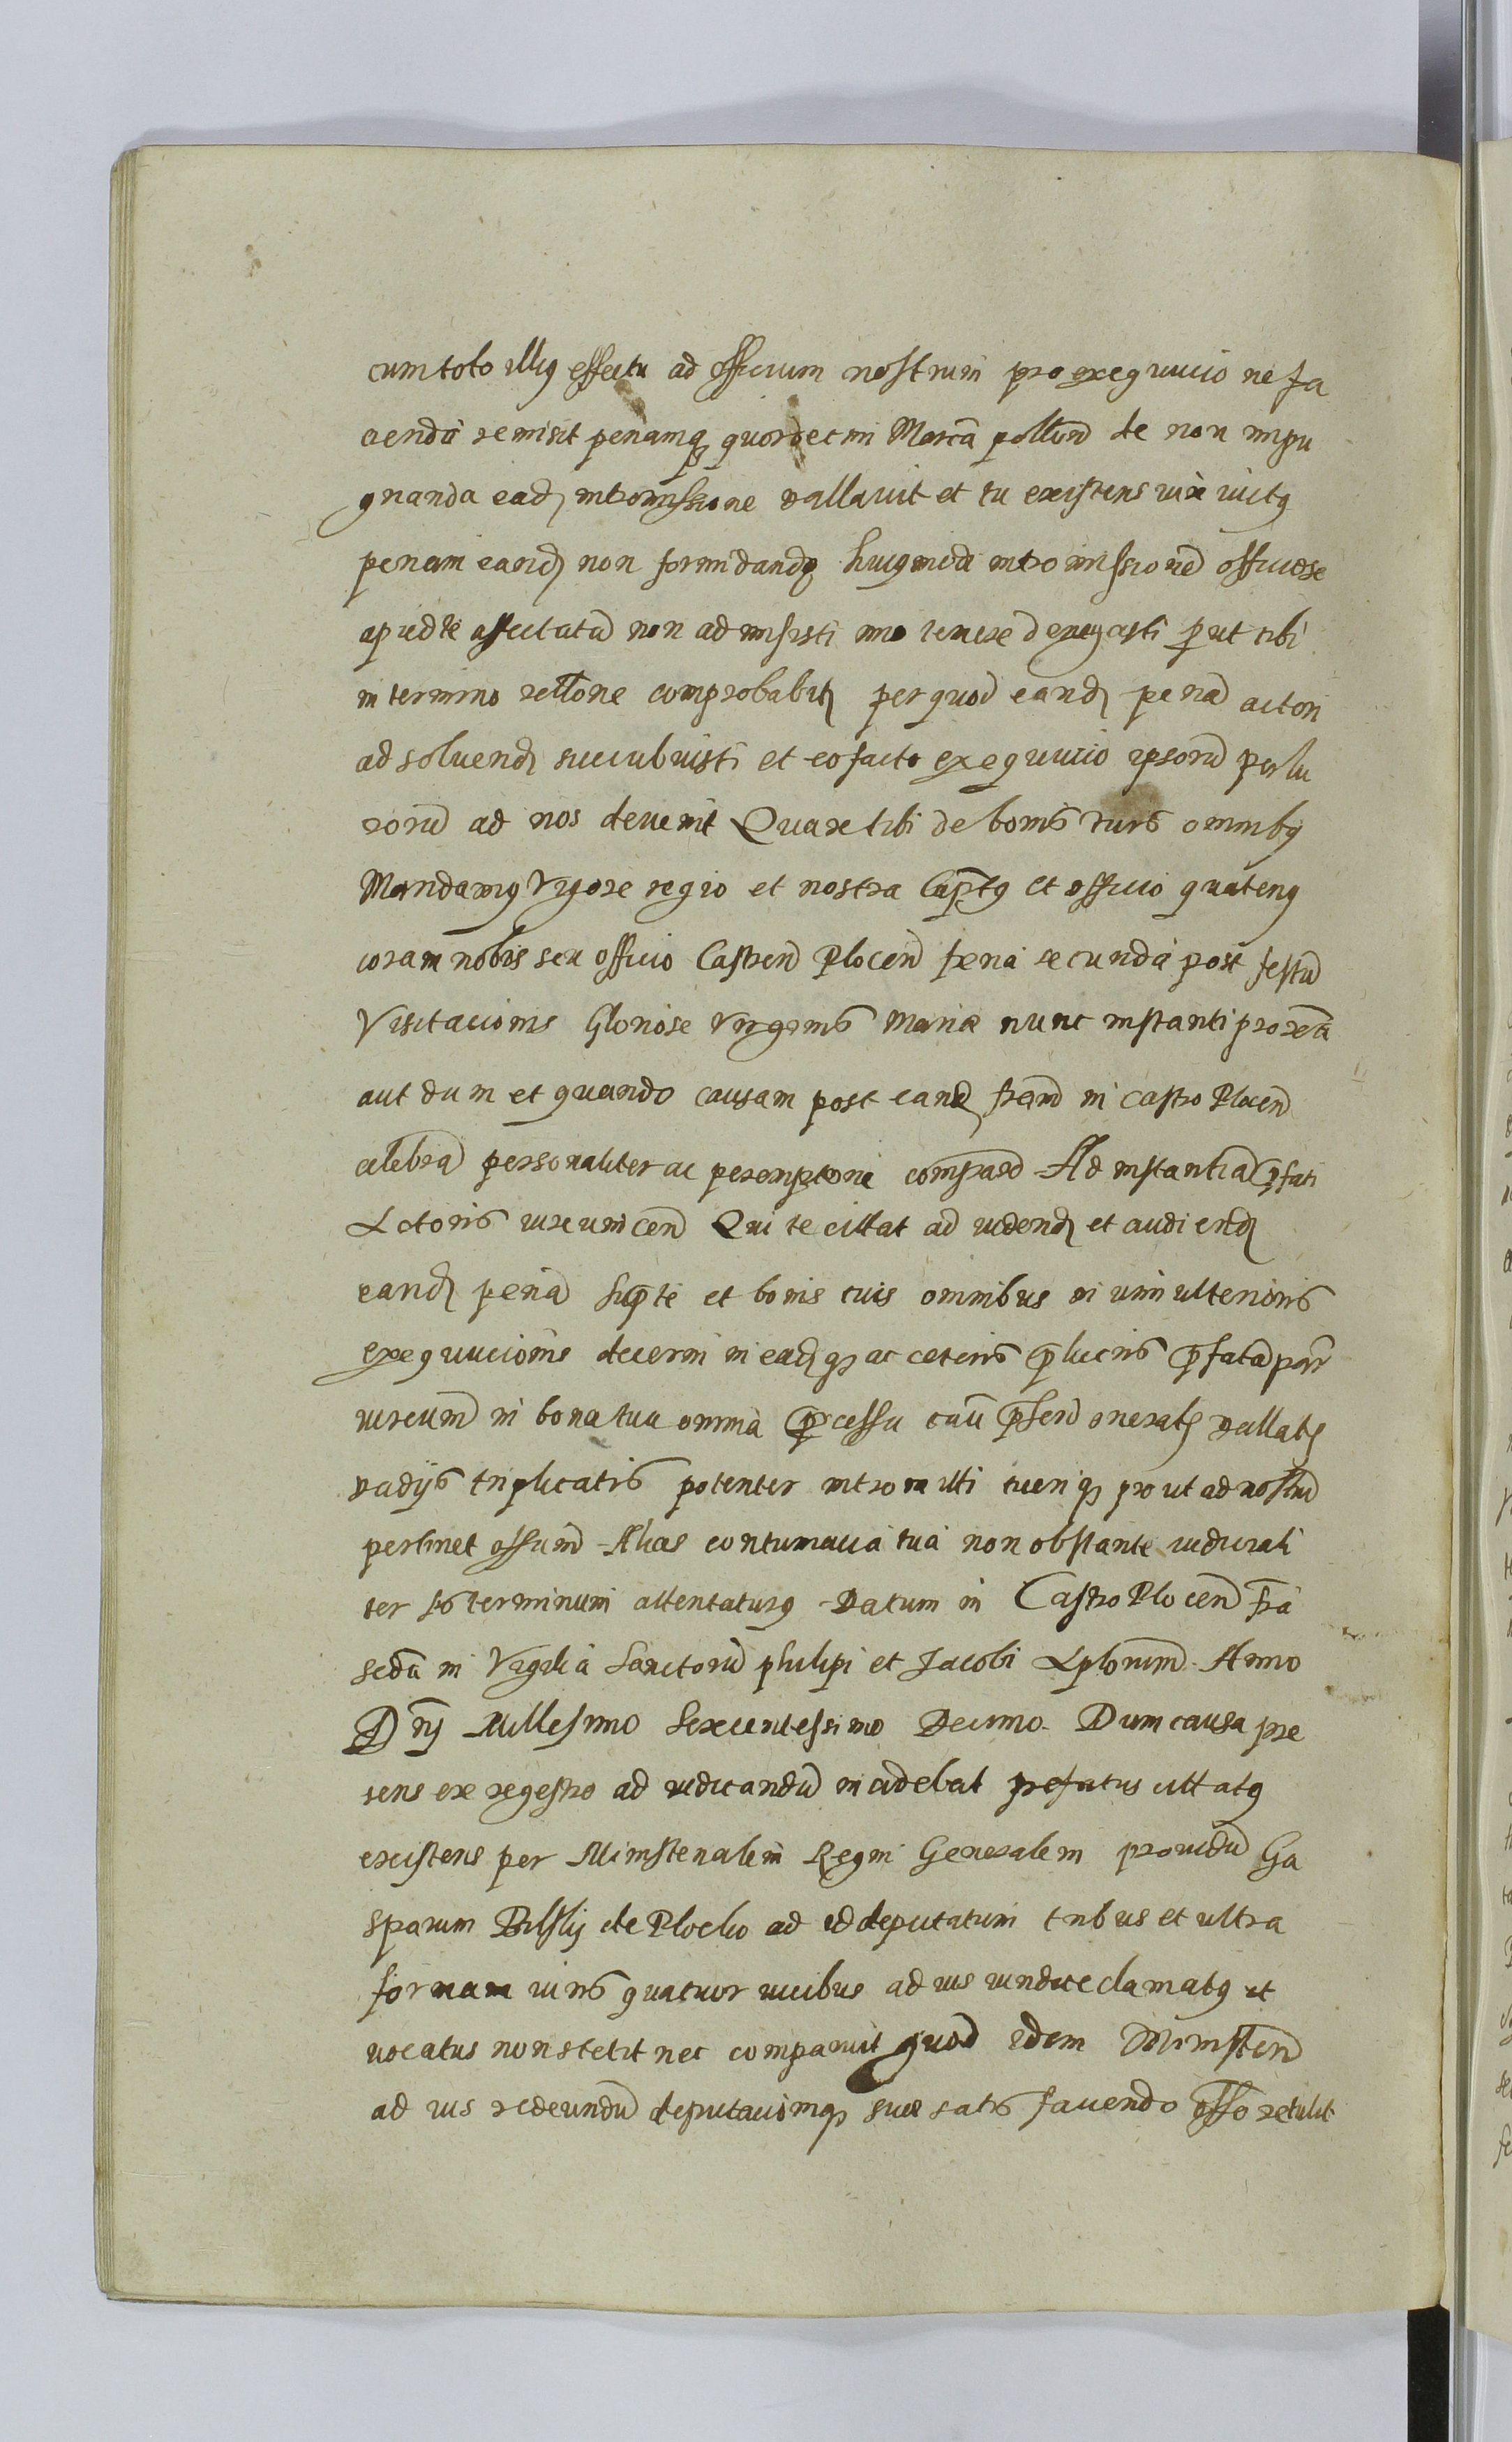 cum toto illiq effectu ad officium nostrum pro exequucione fa
cenda remisit penamq quordecim Marca pollun de non impu
gnanda ead intromissione vallavit et tu existens iure victq
penam eand non formidando huiqmodi intromissione officiose
apud te affectata non admisisti imo temere denegasti put tibi
in termino rellone comprobabit per quod eand pena actori
ad solvend succubuisti et eo facto exequucio ipsoru per lu
croru ad nos devenit Quare tibi de bonis tuis omnibq
Mandamq Vigore regio et nostra Captq et officio quatenq
coram nobis seu officio Castren Plocen feria secunda post festu
Visitacionis Gloriose Virginis Mariæ nunc instanti proxa
aut dum et quando causam post eand fram in castro Plocen
celebra personaliter ac peremptorie compared Ad instantia pfati
Actoris iureuincen Qui te cittat ad videnđ et audienđ
eand pena sup te et bonis tuis omnibus in vim ulterioris
exequucionis decerni in eadqz ac ceteris plucris pfata par
iureuin in bona tua omnia pcessu cau pscrip onerat vallat
vadijs triplicatis potenter intromitti tueri qz prout ad nostru
pertinet offum Alias contumacia tua non obstante iudiciali
ter hs terminum attentaturq Datum in Castro Plocen fra
scda in Vigilia Sanctoru philipi et Jacobi Aplorum Anno
Dnj Millesimo Sexcentessimo Decimo Dum causa præ
sens ex regestro ad iudicandu incidebat prefatus cittatq
existens per Ministerialem Regni Generalem providu Ga
sparum Bilsky de Plocko ad id deputatum tribus et ultra
formam iuris quatuor vicibus ad ius vindice clamatq et
vocatus non stetit nec comparuit quod idem Ministeri
ad ius redeundu deputacioniqz suæ satis favendo offo retulit